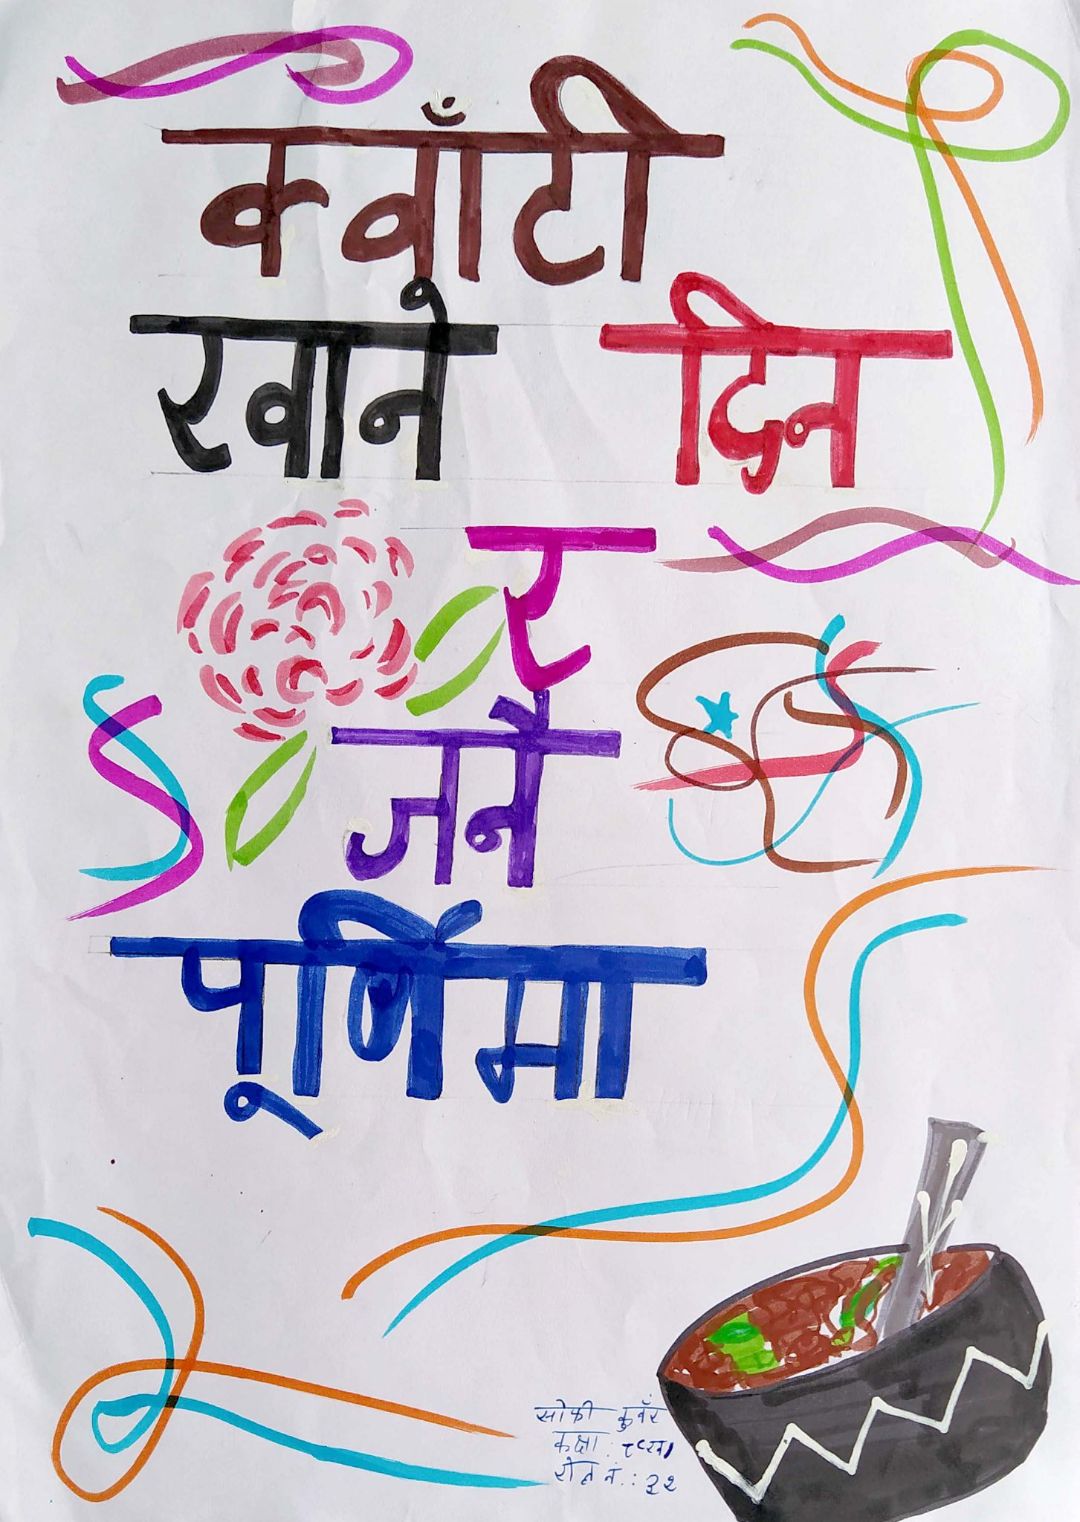 क्वाँटी
खाने दिन
र
जनै
पूर्णिमा
सोफी कुवँर
कक्षा :
रोल नं. : ३२